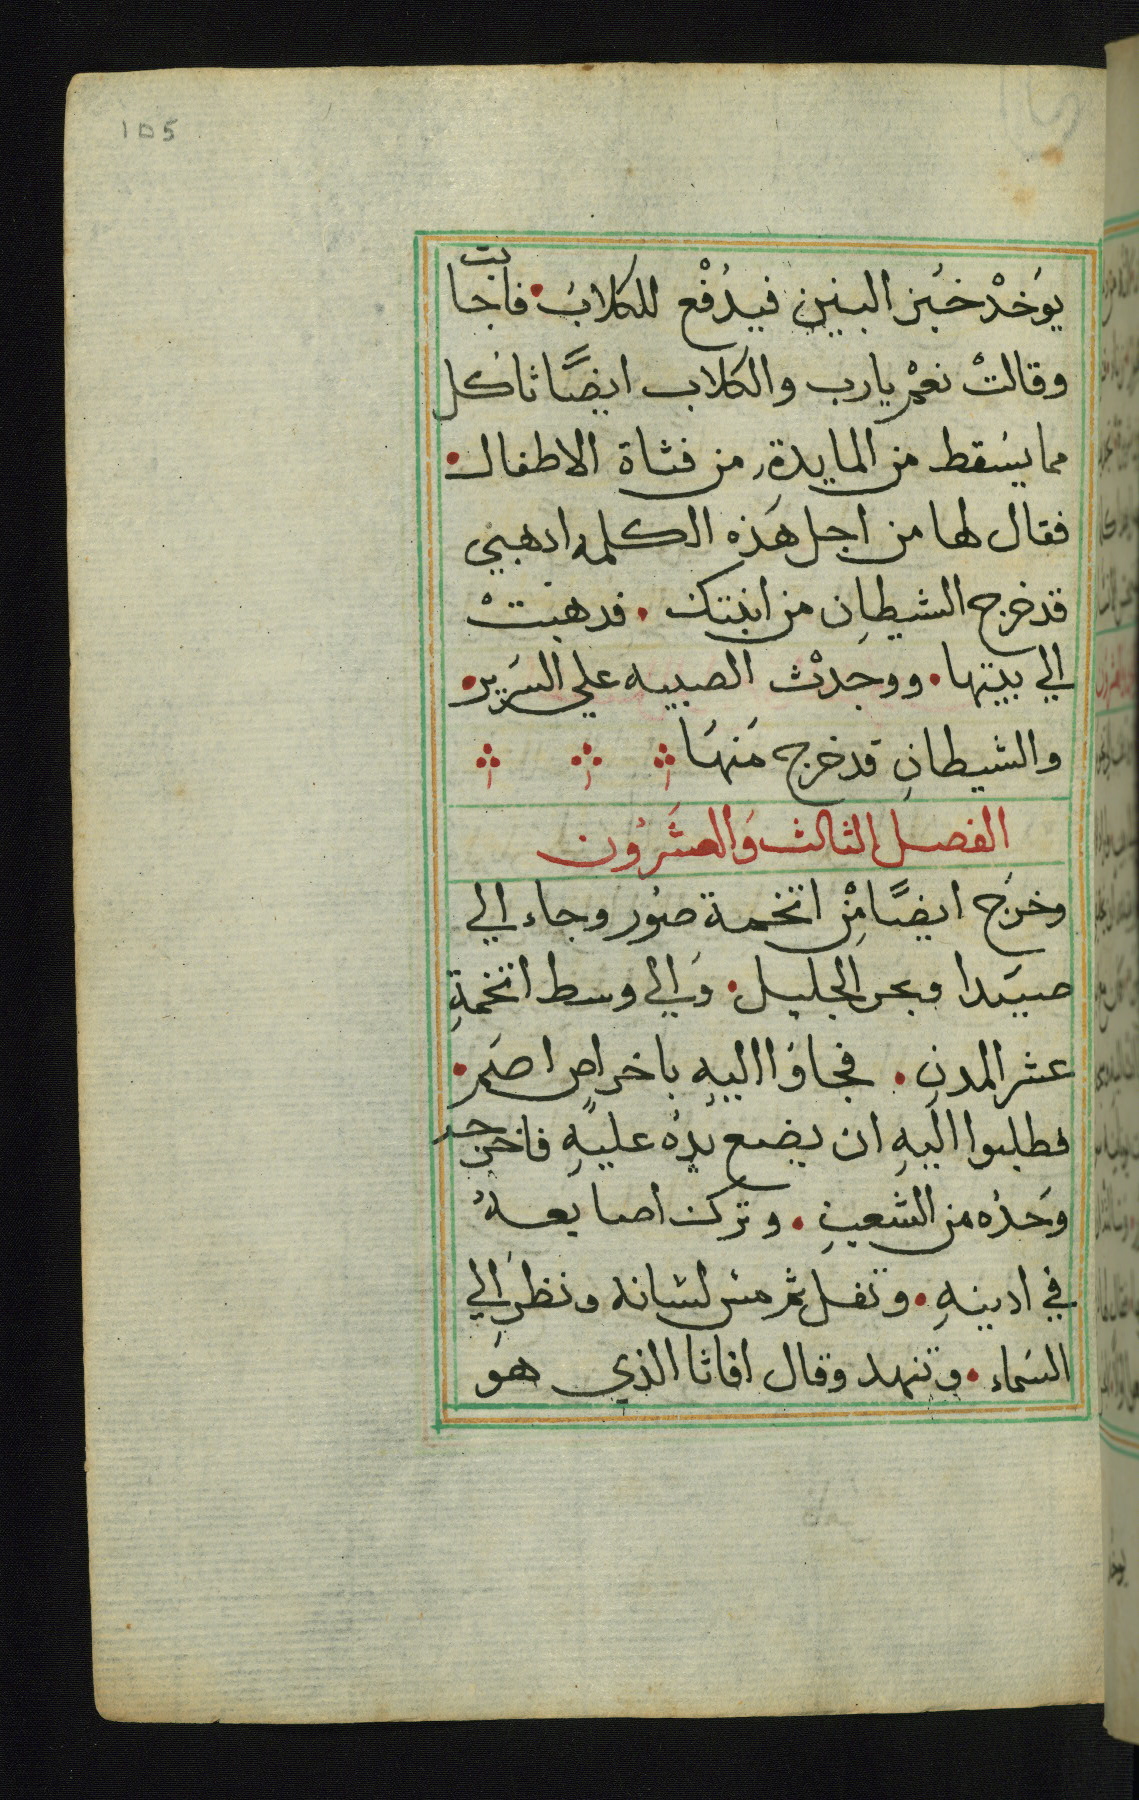 105
يوخذ خبز البنين فيدفع للكلاب فاجابت
وقالت نعم يارب والكلاب ايضًا تاكل
مما يسقط من المايدة من فتاة الاطفال
فقال لها من اجل هذه الكلمه ادهبي
قد خرج الشيطان من ابنتك فدهبت
الي بيتها ووجدت الصبيه علي السرير
والشيطان قد خرج منها
الفصل الثالث والعشرون
وخرج ايضًا من اتخمة صور وجاء الي
صيدا وبحر الجليل والي وسط اتخمة
عشر المدن فجاوا اليه باخرس اصم
فطلبوا اليه ان يضع يده عليه فاخرجه
وحده من الشعب وترك اصابعه
في ادينه وتفل ثم مس لسانه ونظر الي
السماء وتنهد وقال افاثا الذي هو